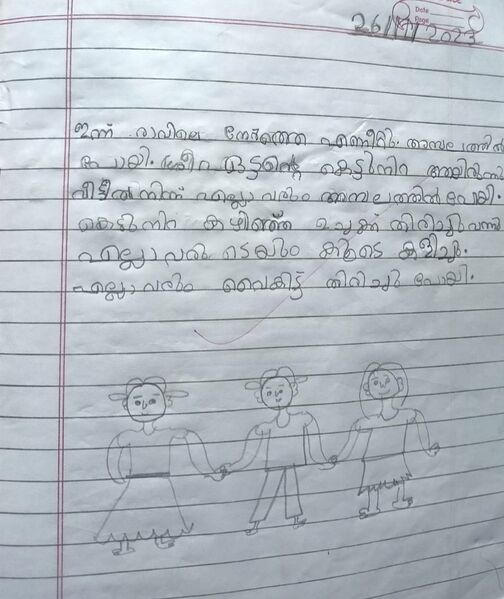 Date
Page
26/11/2023
ഇന്ന് രാവിലെ നേരത്തെ എണീറ്റു. അമ്പലത്തിൽ
പോയി. കുട്ടന്റെ കെട്ടുനിറ
വീട്ടിൽ നിന്ന് എല്ലാവരും അമ്പലത്തിൽ പോയി.
കെട്ടുനിറ കഴിഞ്ഞ് ഉച്ചക്ക് തിരിച്ചുവന്നു
എല്ലാവരുടെയും കൂടെ കളിച്ചു.
എല്ലാവരും വൈകിട്ട് തിരിച്ചു പോയി.